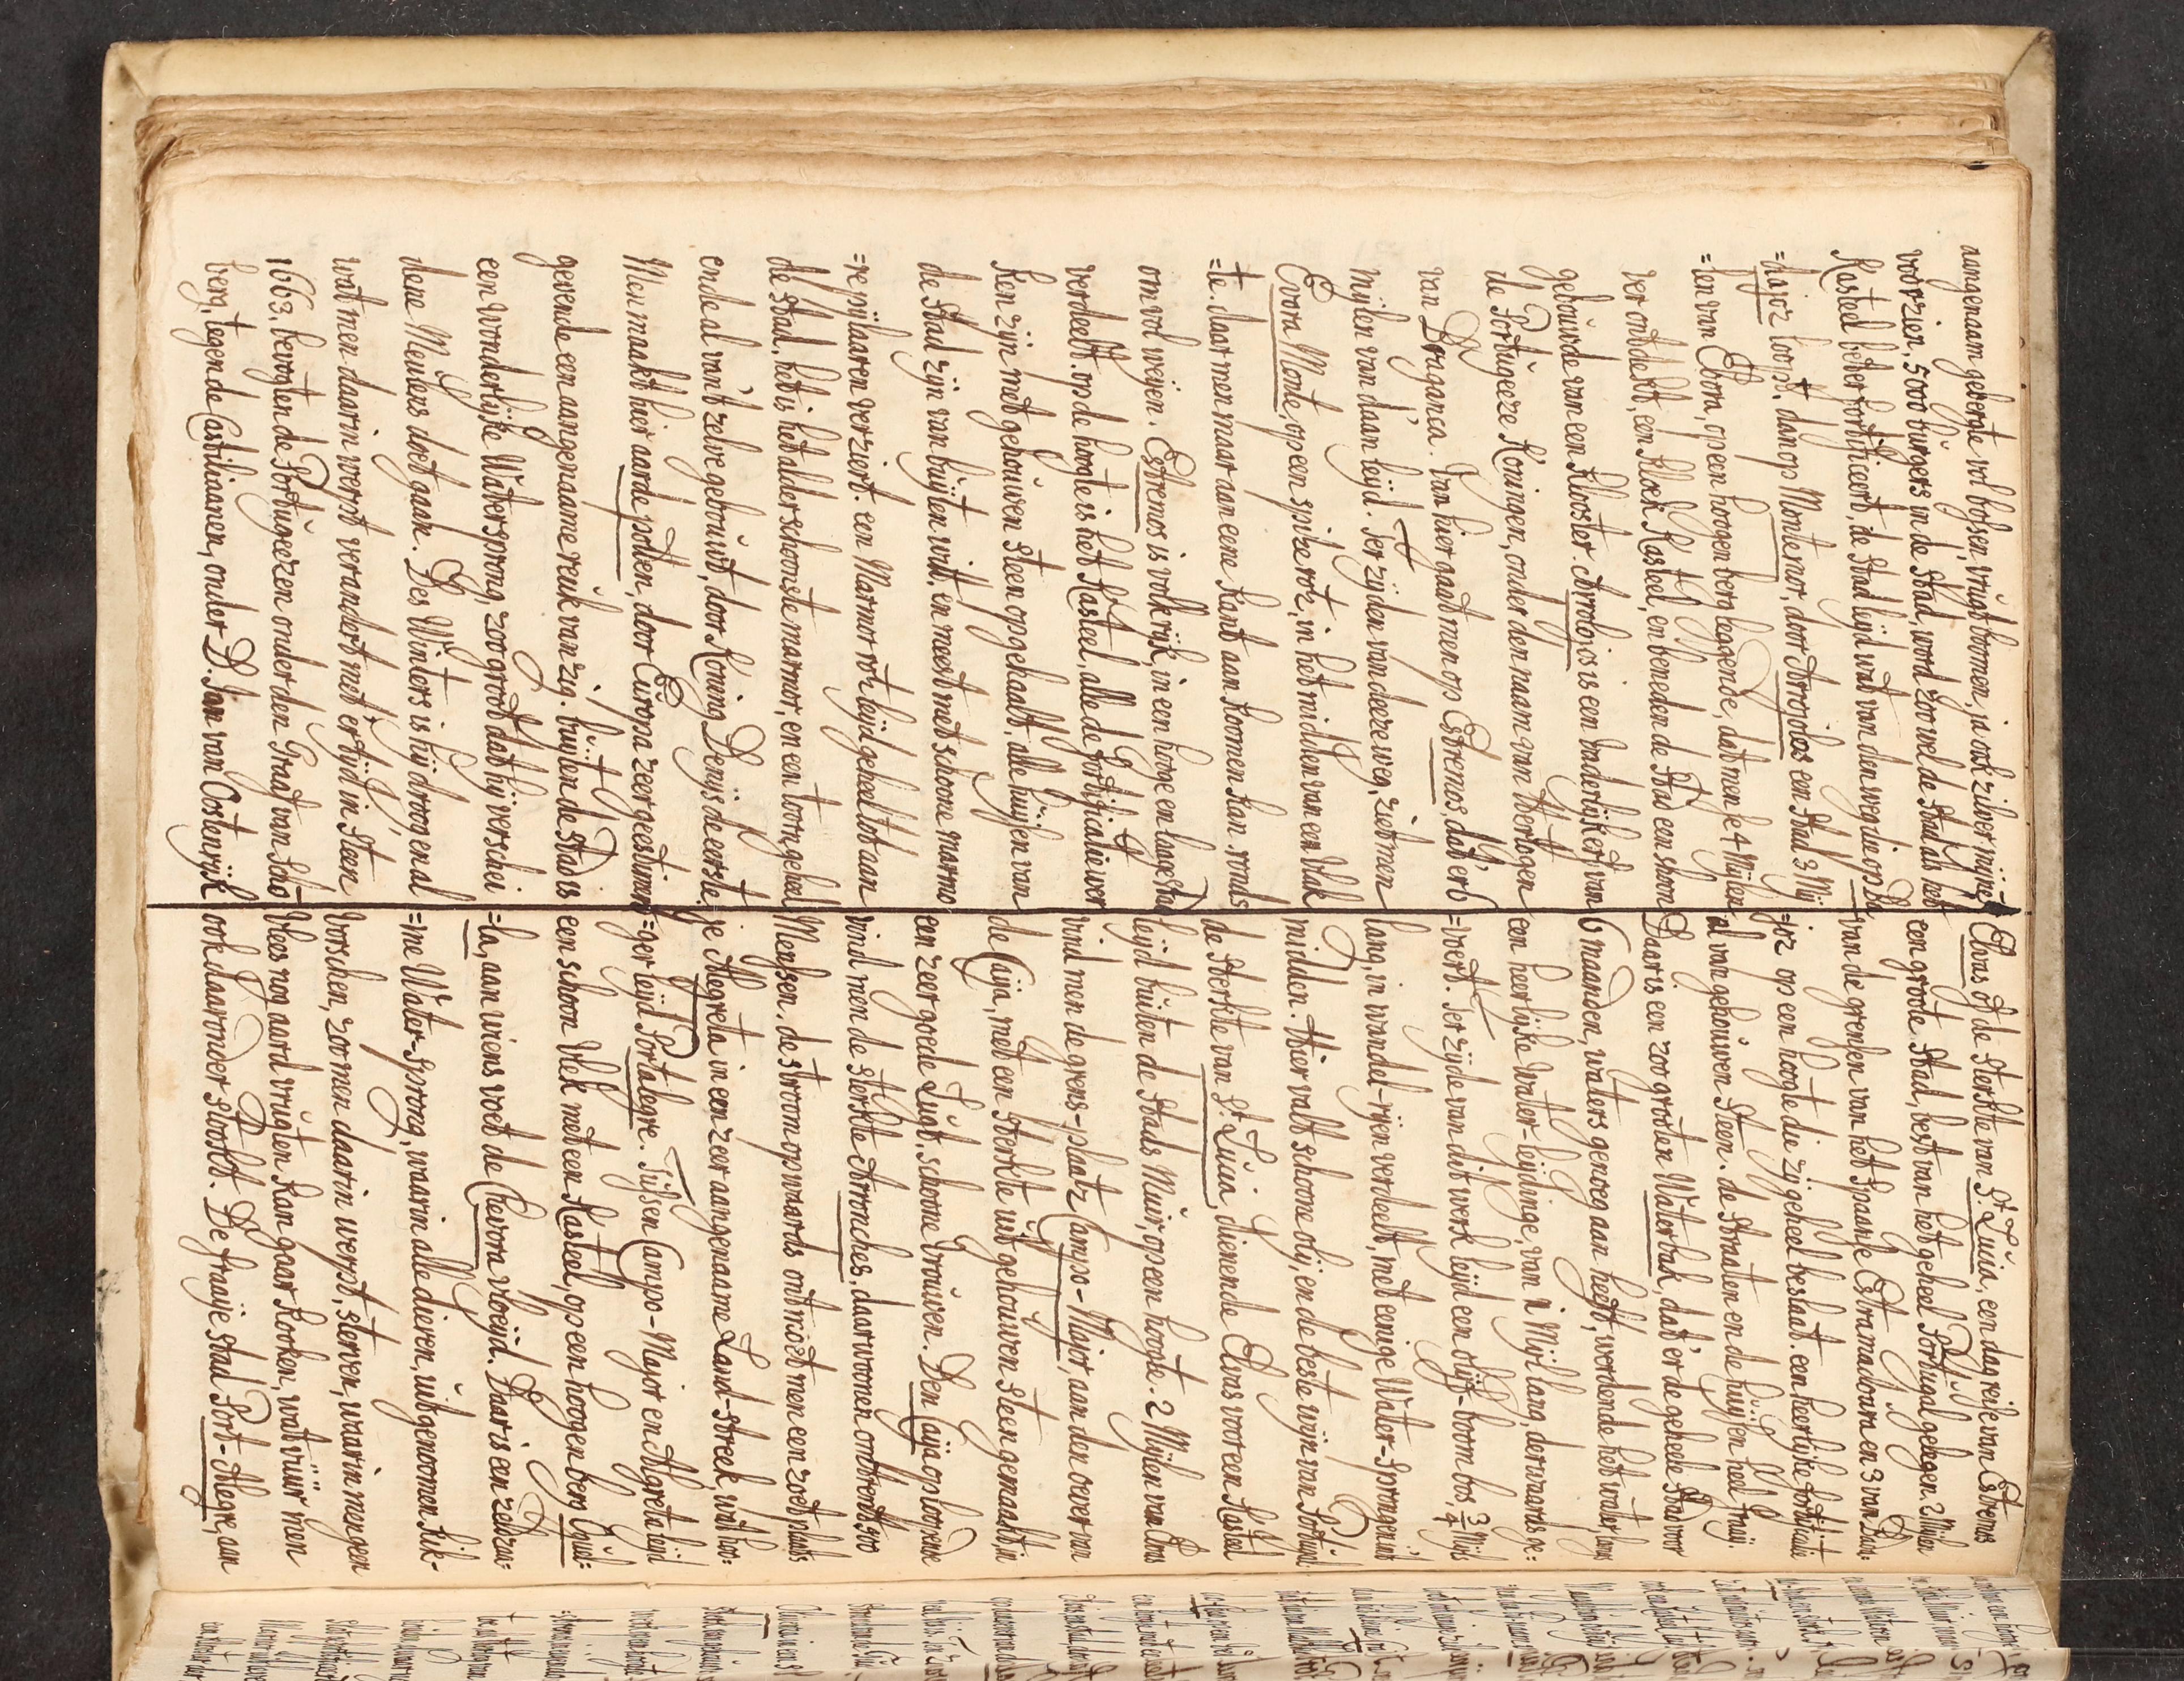 aangenaam geberte vol bossen, vrugt bomen, ja ook zilver mijne
voorzien, 5000 burgers in de Stad, word zoo wel de Stad als het
Kasteel beter fortificeert, de Stad leijd wat van den weg die op Ba
=hajoz loopt, dan op Montemor, door Arrojolos een Stad 3 Mij
=len van Ebora, op een hoogen berg leggende, dat men je 4 Mijlen
ver ontdekt, een kloek Kasteel, en beneden de Stad een schoon
gebouwde van een Klooster. Arrolojos is een Vaderlijk erf van
de Portugeeze Koningen, onder den naam van Hertogen
van Braganca. Van hier gaat men op Estremos, dat er 6
mijlen van daan leijd. Ter zijden van deeze weg, ziet men
Evora Monte, op een spitze rotz, in het midden van een Vlak
=te. daar men maar aan eene Kant aan komen kan. ronds
om vol weijen. Estremos is volk rijk, in een hoge en laage Stad
verdeelt. op de hoogte is het Kasteel, alle de fortifikatie wer
ken zijn met gehouwen Steen opgehaalt, alle huijsen van
de Stad zijn van buijten wit, en meest met schoone marmo
=re pijlaaren verziert. een Marmor rotz leijd geheel tot aan
de Stad, het is het alder schoonste marmor, en een toorn, geheel
ende al van 't zelve gebouwt, door Koning Denijs de eerste.
Men maakt hier aarde potten, door Europa zeer geestimeert
gevende een aangenaame reuk van zig. buijten de Stad is
een wonderlijke Watersprong, zoo groot dat hij verschei
dene Meulens doet gaan. Des Winters is hij droog en al
wat men daarin werpt verandert met er tijd in Steen
1663, bevogten de Portugeezen onder den Graaf van Schom
berg, tegen de Castiliaanen, onder D. Jan van Oostenrijk
Elvas of de Sterkte van St. Lucia, een dag reise van Estremos
een groote Stad, best van het geheel Portugal gelegen. 2 Mijlen
van de grensen van het Spaanse Estramadoura en 3 van Bada=
=joz op een hoogte die zij geheel beslaat. een heerlijke fortificatie
al van gehouwen Steen. de Straaten en de huijsen heel fraaij.
Daar is een zoo grooten Waterbak, dat 'er de geheele Stad voor
6 maanden, waters genoeg aan heeft, werdende het water, langs
een heerlijke water-leijdinge, van 1 Mijl lang, derwaards ge=
=voert. Ter zijde van dit werk leijd een olijf-boom bos, 3/4 Mijls
lang, in wandel-rijen verdeelt, met eenige Water-sprongen in 't
midden. Hier valt schoone olij, en de beste wijn van Portugal.
de Sterkte van St. Lucia, dienende Elvas voor een Kasteel
leijd buiten de Stads Muir, op een hoogte. 2 Mijlen van Elvas
vind men de grens-plaatz Campo-Major, aan den oever van
de Caija, met een Sterkte uit gehouwen Steen gemaakt, in
een zeer goede Lugt. schoone Vrouwen. Den Caija oploopende
vind men de Sterkte Arronches, daar woonen omtrent 500
Mensen. de stroom opwaards ontmoet men een zoet plaats
je Alegreta in een zeer aangenaame Land-streek, wat hoo=
=ger leijd Portalegre. Tussen Campo-Major en Algreta leijd
een schoon Vlek met een Kasteel, op een hoogen berg Ougue=
=la, aan wiens voet de Chevora vloeijd. Daar is een zeldzaa=
=me Water-Sprong, waarin alle dieren, uitgenoomen Kik-
vorschen, zoo men daarin werpt, sterven, waarin men geen
Vlees nog aard vrugten kan gaar kooken, wat vuur men
ook daar onder stookt. De fraije Stad Port-Alegre, aan